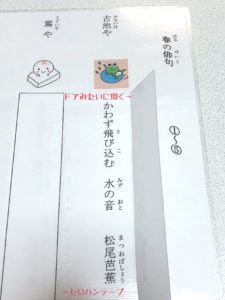 春の俳句
はる はいく
①～⑤
古池や
ふるいけ
ドアみたいに開く→
かわず飛び込む 水の音 松尾芭蕉
と こ みず おと まつおばしょう
鶯や
うぐいす
←セロハンテープ